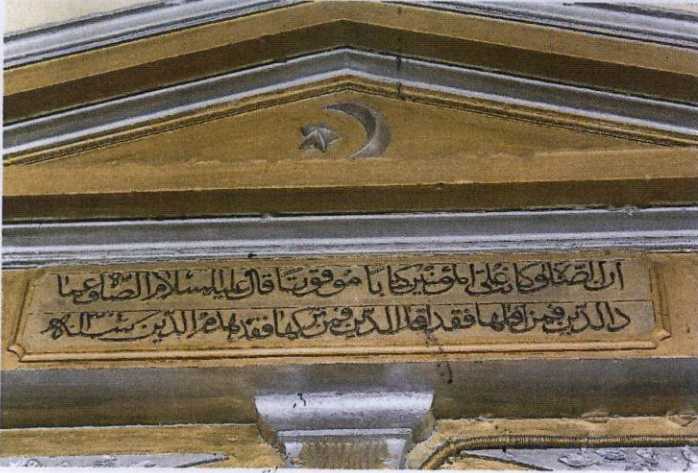 ان الصلوة كانت على المؤمنين كتابا موقوتا قال عليه السلام الصلوة عما
د الدين فمن اقامها فقد اقام الدين فمن تركها فقد هدم الدين سنه